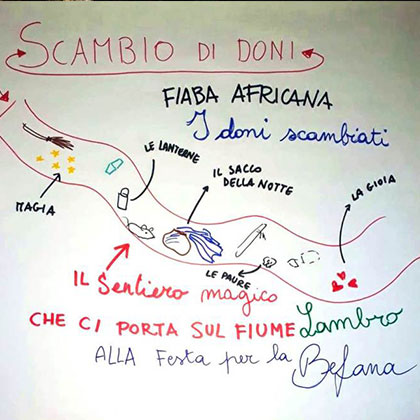 SCAMBIO DI DONI
FIABA AFRICANA
I doni scambiati
LE LANTERNE
IL SACCO
DELLA NOTTE
LA GIOIA
MAGIA
LE PAURE
IL Sentiero magico
CHE CI PORTA SUL FIUME Lambro
ALLA Festa per la Befana